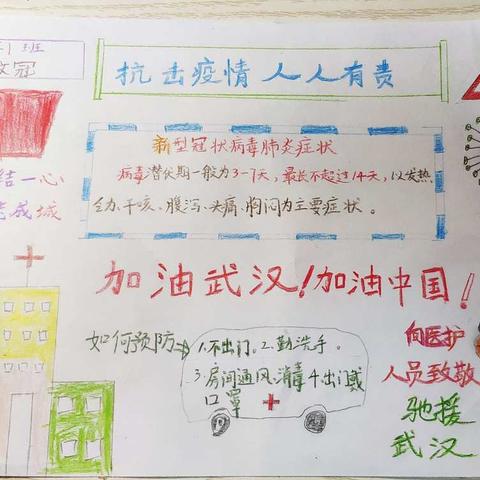 班
冠
抗击疫情人人有责
新型冠状病毒肺炎症状
病毒潜伏期一般为3-7天，最长不超过14天，以发热
全力、干亥、腹泻、头痛、胸闷为主要症状。
结一心
成城
加油武汉！加油中国！
如何预防
1.不出门。2.勤洗手。
3.房间通风、消毒4.出门戴
口罩
向医护
人员致敬
驰援
武汉